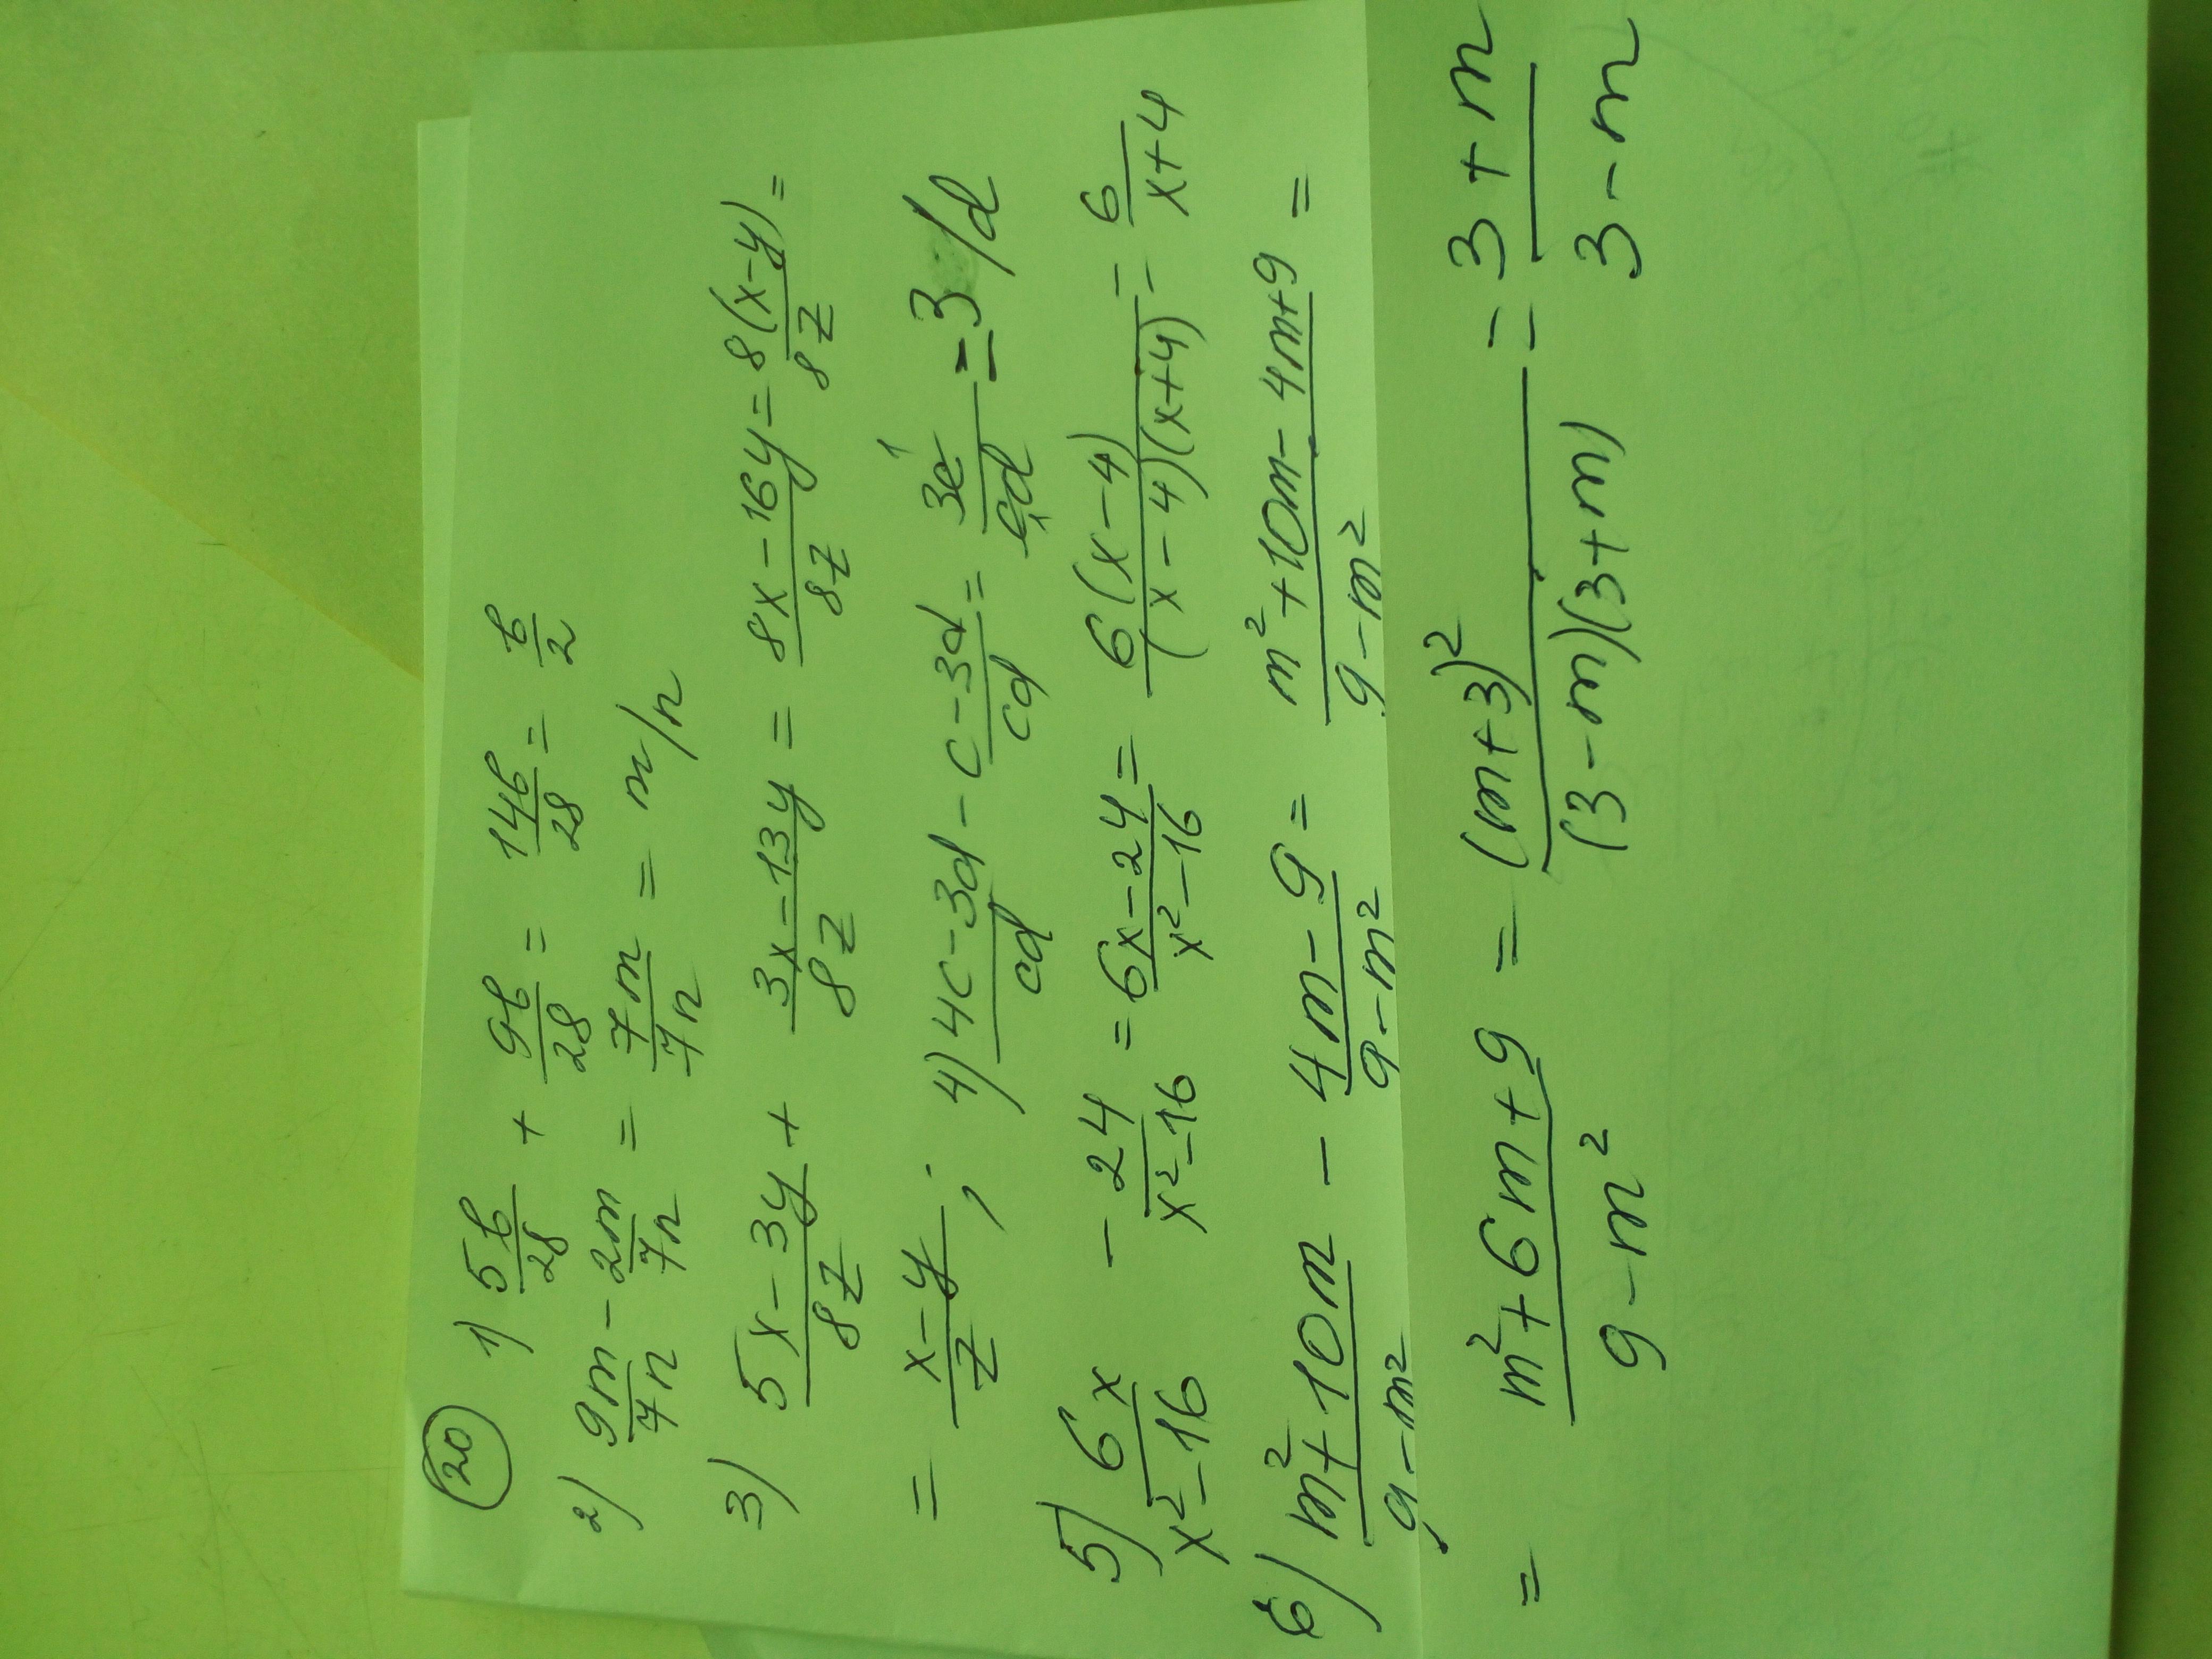 20 1) 5b/28 + 9b/28 = 14b/28 = b/2
2) 9m/7n - 2m/7n = 7m/7n = m/n
3) (5x-3y)/8z + (3x-13y)/8z = (8x-16y)/8z = 8(x-y)/8z =
= (x-y)/z ; 4) (4c-3d)/cd - (c-3d)/cd = 3c/cd = 3/d
5) 6x/(x²-16) - 24/(x²-16) = (6x-24)/(x²-16) = 6(x-4)/((x-4)(x+4)) = 6/(x+4)
6) (m²+10m)/(9-m²) - (4m-9)/(9-m²) = (m²+10m-4m+9)/(9-m²) =
= (m²+6m+9)/(9-m²) = (m+3)²/((3-m)(3+m)) = (3+m)/(3-m)